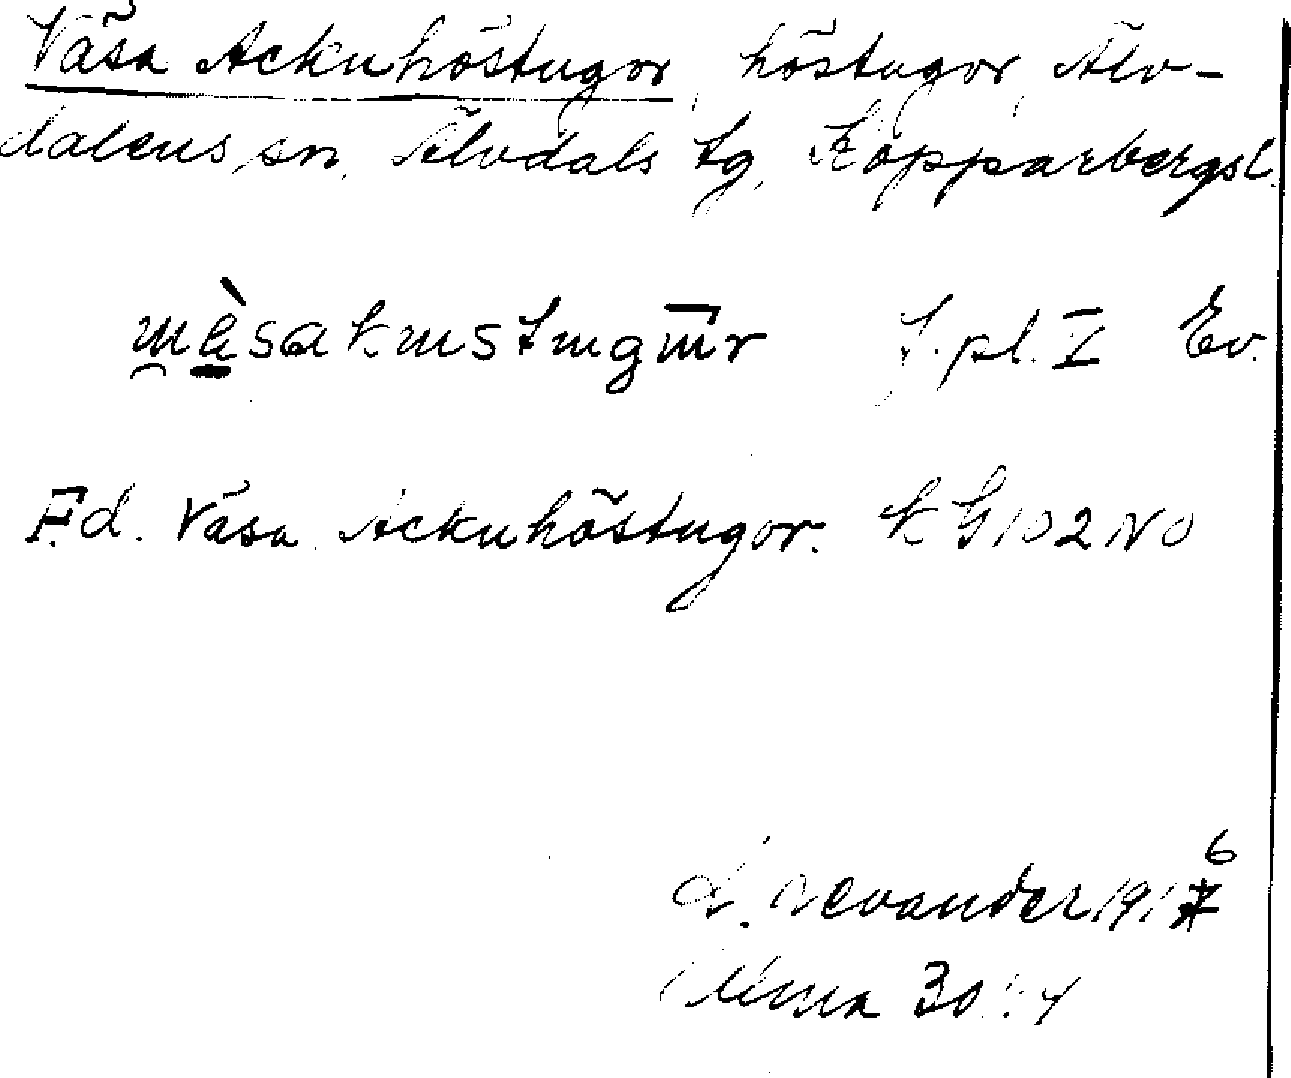 Väsa Ackuhöstugor, höstugor, Älv-
dalens sn, Älvdals tg, Kopparbergsl.
f. pl. I Ev.
F.d. Väsa Ackuhöstugor. k G 102 NO
L. Levander 1916
30